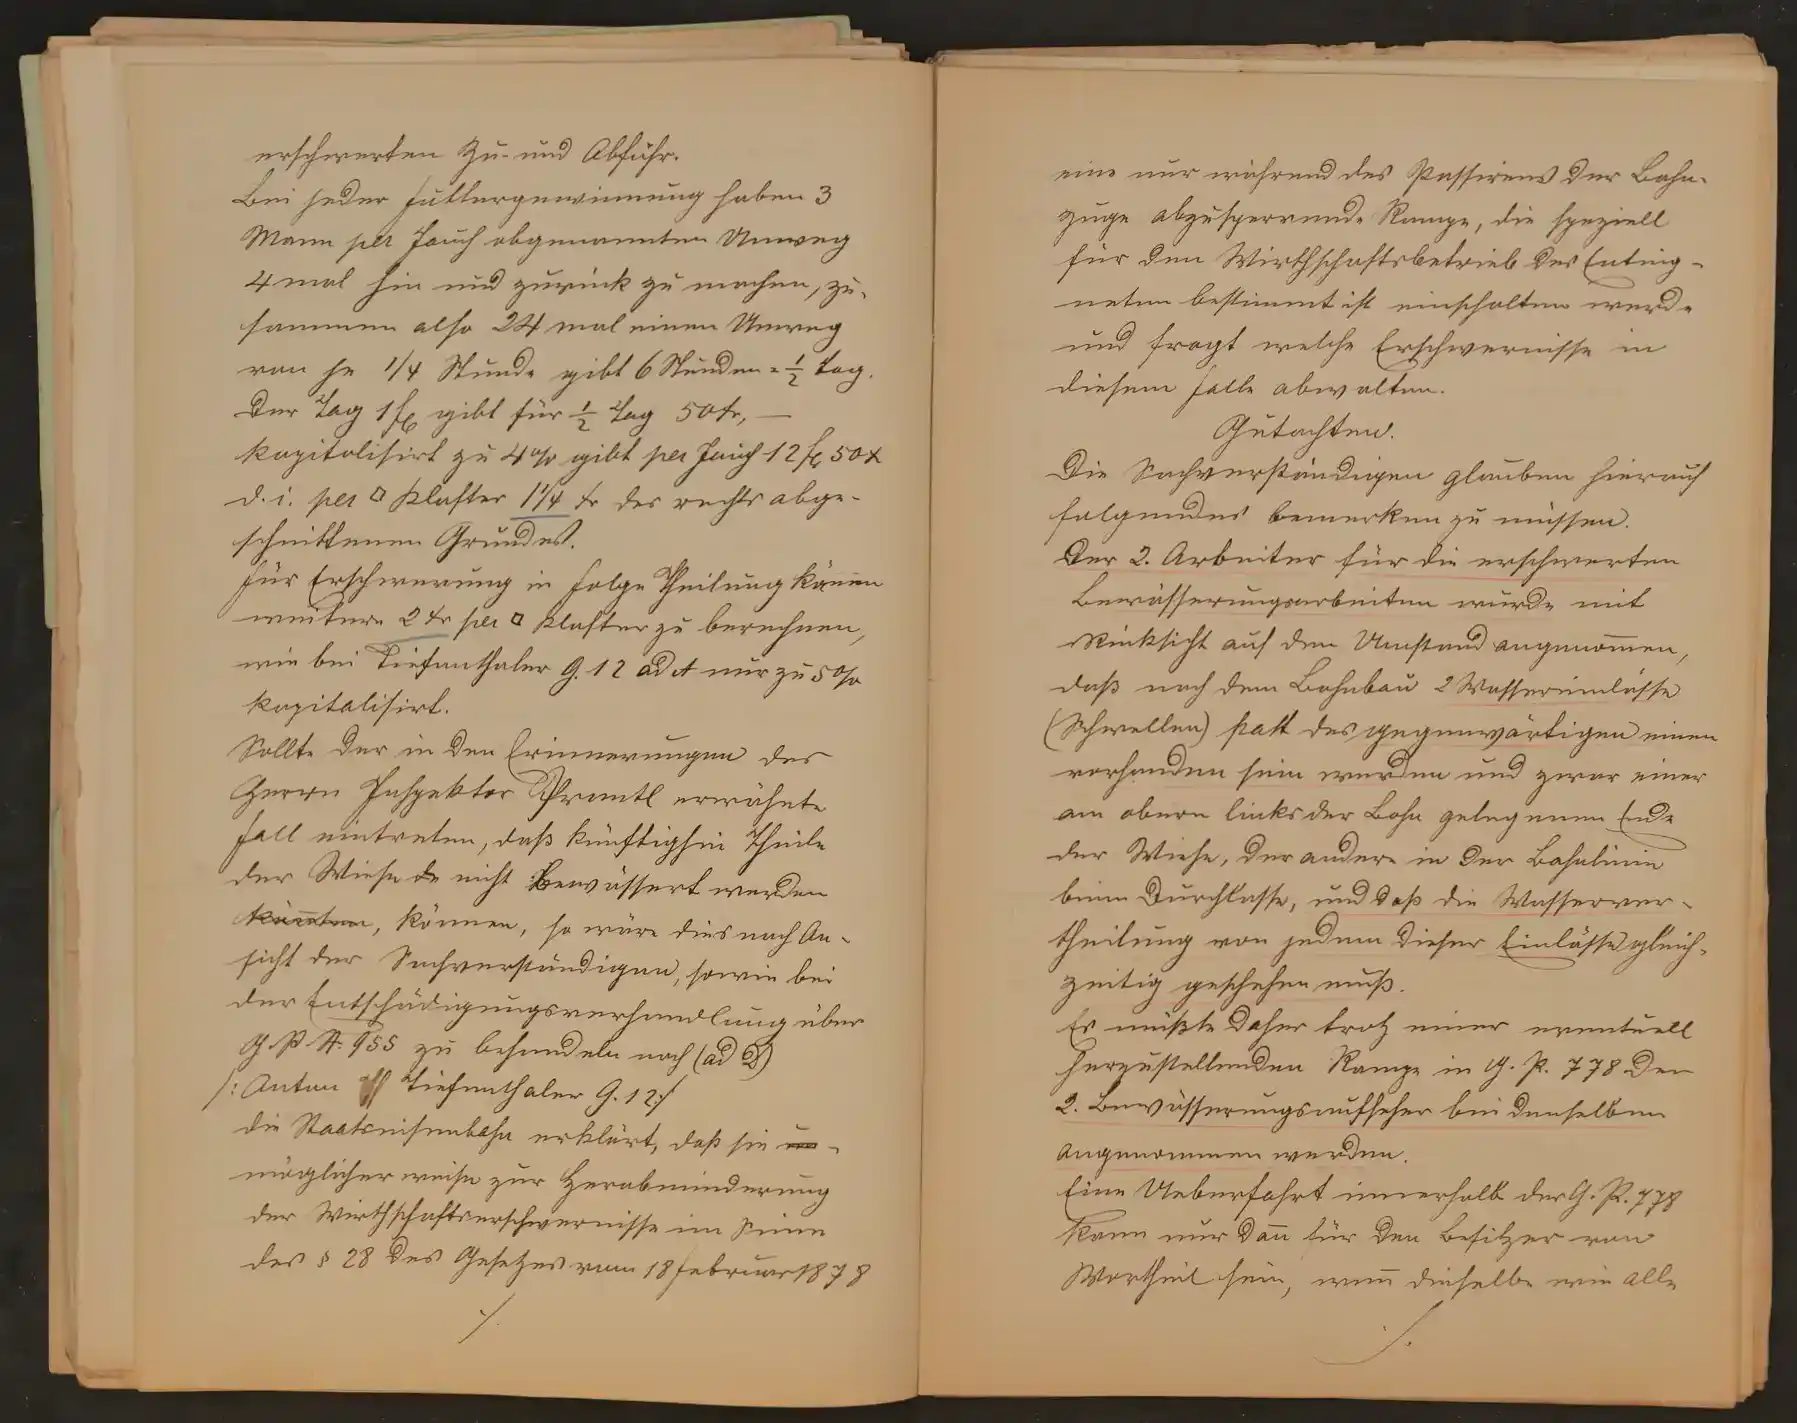 erschwerten Zu- und Abfuhr.
Bei jeder Futtergewinnung haben 3
Mann per Jauch obgenannten Umweg
4 mal hin und zurück zu machen, zu-
sammen also 24 mal einen Umweg
von je 1/4 Stunde gibt 6 Stunden = 1/2 Tag.
Der Tag 1 fl gibt für 1/2 Tag 50 kr, —
kapitalisirt zu 4% gibt per Jauch 12 fl 50 x
d. i. per □ Klafter 1 1/4 kr des rechts abge-
schnittenen Grundes.
Für Erschwerung in Folge Theilung kämen
weitere 2 kr per □ Klafter zu berechnen,
wie bei Tiefenthaler G. 12 ad A nur zu 5%
kapitalisirt.
Sollte der in den Erinnerungen des
Herrn Inspektor Prantl erwähnte
Fall eintreten, daß künftighin Theile
der Wiese nicht bewässert werden
könnten, können, so wäre dies nach An-
sicht der Sachverständigen, sowie bei
der Entschädigungsverhandlung über
G. P. N. 955 zu behandeln nach (ad D)
/: Anton Tiefenthaler G. 12 :/
die Staatseisenbahn erklärt, daß sie
möglicherweise zur Herabminderung
der Wirthschaftserschwernisse im Sinne
des § 28 des Gesetzes vom 18 Februar 1878
./.
eine nur während des Passirens der Bahn-
züge abzusperrende Rampe, die speziell
für den Wirthschaftsbetrieb des Enteig-
neten bestimmt ist einschalten werde
und fragt welche Erschwernisse in
diesem Falle obwalten.
Gutachten.
Die Sachverständigen glauben hierauf
folgendes bemerken zu müssen.
Der 2. Arbeiter für die erschwerten
Bewässerungsarbeiten wurde mit
Rücksicht auf den Umstand angenommen,
daß nach dem Bahnbau 2 Wassereinlässe
(Schwellen) statt des gegenwärtigen einen
vorhanden sein werden und zwar einer
am obern links der Bahn gelegenen Ende
der Wiese, der andere in der Bahnlinie
beim Durchlasse, und daß die Wasserver-
theilung von jedem dieser Einlässe gleich-
zeitig geschehen muß.
Es müßte daher trotz einer eventuell
herzustellenden Rampe in G. P. 778 der
2. Bewässerungsaufseher bei denselben
angenommen werden.
Eine Ueberfahrt innerhalb der G. P. 778
kann nur dan̄ für den Besitzer von
Vortheil sein, wen̄ dieselbe wie alle
./.